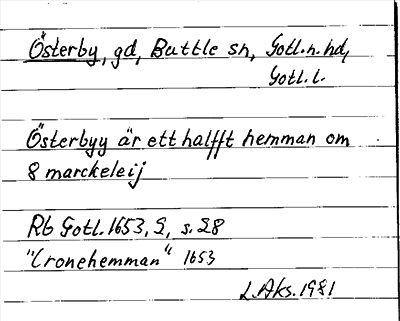 Österby, gd, Buttle sn, Gotl. n. hd,
Gotl. l.
Österbyy är ett halfft hemman om
8 marckeleij
Rb Gotl. 1653, 2, s. 28
"Cronehemman" 1653
L. Aks. 1981